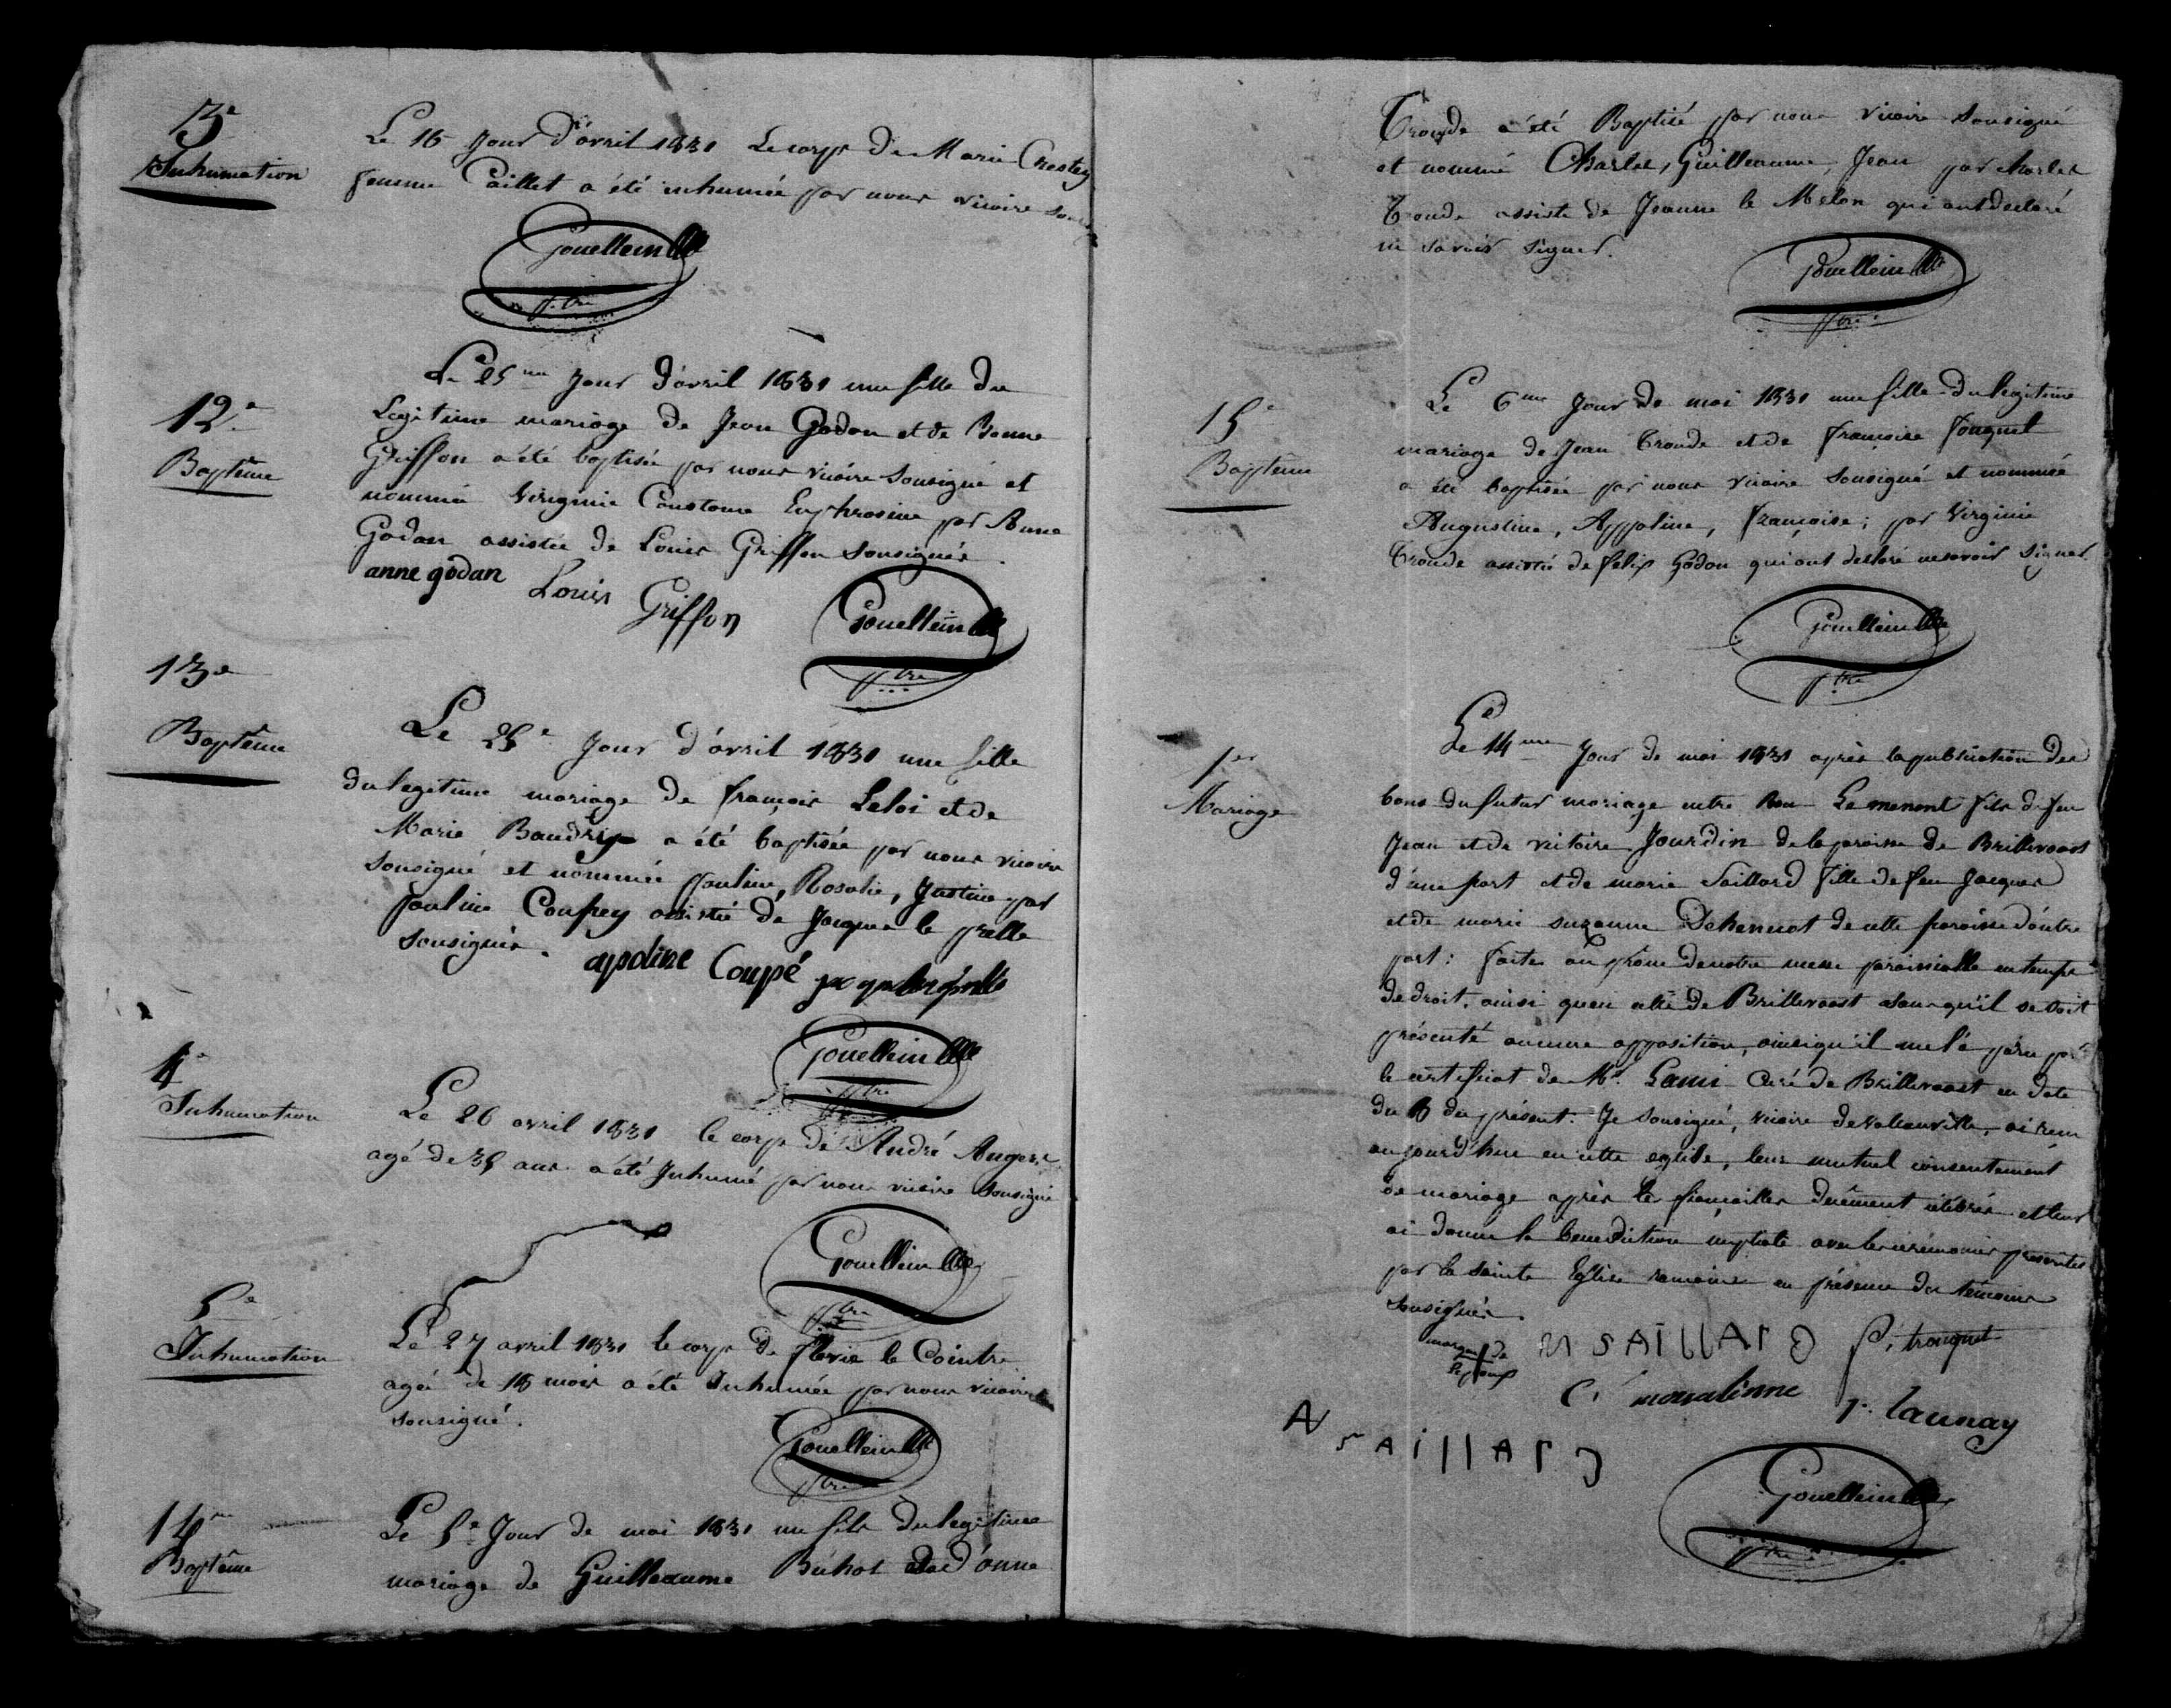 3e
Inhumation
Le 16 Jour d'avril 1831 Le corps de Marie Crestey
femme Paillet a été inhumée par nous vicaire sous
Gouelleinville
ptre
12e
Baptême
Le 25me Jour d'avril 1831 une fille du
Legitime mariage de Jean Godan et de Bonne
Griffon a été baptisée par nous vicaire Sousigné et
nommée Virginie Constance Euphrosine par Anne
Godan assistée de Louis Griffon sousignés.
anne godan Louis Griffon Gouelleinville
ptre
13e
Baptême
Le 25e Jour d'avril 1831 une fille
du legitime mariage de françois Leloi et de
Marie Baudry a été baptisée par nous vicaire
Sousigné et nommée pauline, Rosalie, Justine par
pauline Coupey assistée de Jacques le prelle
sousignés.
apoline Coupé
Gouelleinville
ptre
4e
Inhumation
Le 26 avril 1831 le corps de André Auger
agé de 35 ans a été Inhumé par nous vicaire Sousigné
Gouelleinville
ptre
5e
Inhumation
Le 27 avril 1831 le corps de flavie le Cointre
agée de 18 mois a été Inhumée par nous vicaire
sousigné.
Gouelleinville
ptre
14e
Baptême
Le 5e Jour de mai 1831 un fils du legitime
mariage de Guilleaume Buhot et de d'anne
Troude a été Baptisé par nous vicaire sousigné
et nommé Charles, Guilleaume, Jean par charles
Troude assisté de Jeanne le Melon qui ont declaré
ne savoir signer.
Gouelleinville
ptre
15e
Baptême
Le 6me Jour de mai 1831 une fille du legitime
mariage de Jean Troude et de françoise fouquet
a été baptisée par nous vicaire sousigné et nommée
Augustine, Appoline, françoise; par Virginie
Troude assistée de felix Godan qui ont declaré ne savoir signer.
Gouelleinville
ptre
1er
Mariage
Le 14me Jour de mai 1831 après la publication des
bans du futur mariage entre Bon Le menont fils de feu
Jean et de victoire Jourdin de la paroisse de Brillevaast
d'une part et de marie Saillard fille de feu Jacques
et de marie suzanne Dehennot de cette paroisse d'autre
part: faites au prône de notre messe paroissialle en temps
de droit, ainsi qu'en celle de Brillevaast sans qu'il se soit
présenté aucune opposition, ainsi qu'il me l'a paru par
le certificat de Mr Lami Curé de Brillevaast en date
du 8 du présent. Je sousigné, vicaire de valcanville, ai reçu
aujourd'hui en cette eglise, leur mutuel consentement
de mariage après les fiançailles duêment célébrés et leur
ai donné la benediction nuptiale avec les cérémonies prescrites
par la Sainte Eglise romaine en présence des témoins
Sousignés.
marque de l'époux
M SAILLARD P. trouquet
mouchenne
J. launay
N SAILLARD
Gouelleinville
ptre